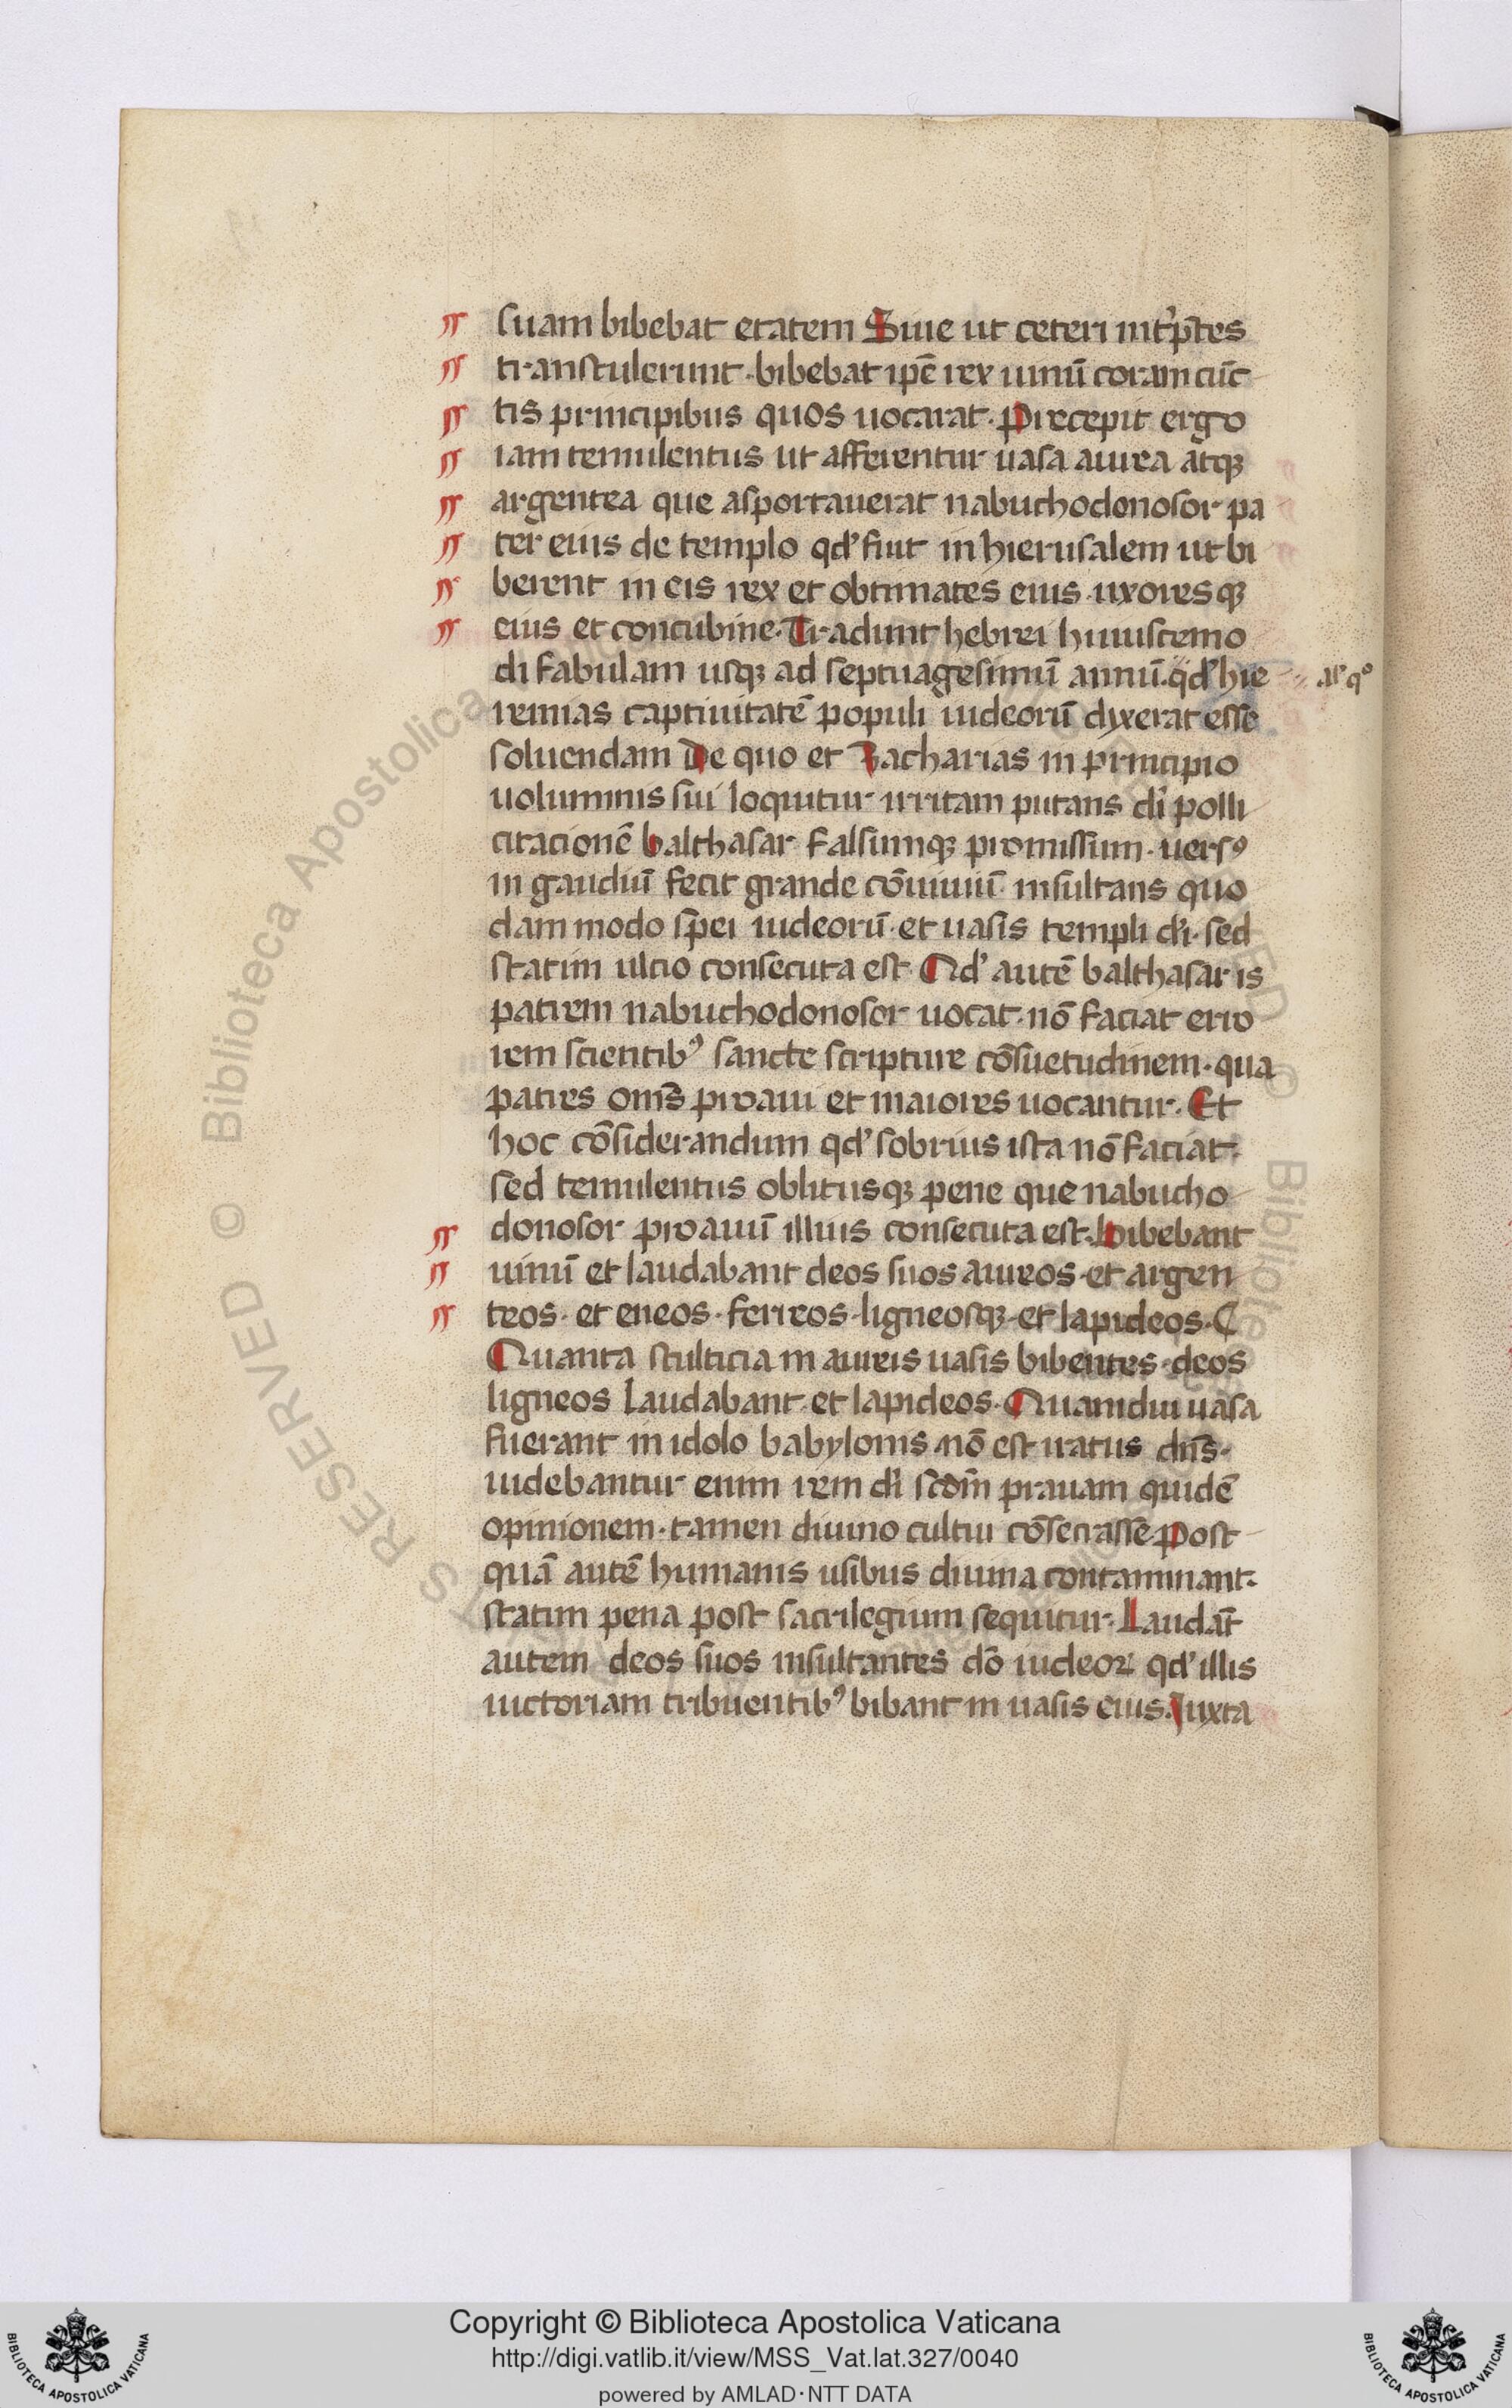 suam bibebat etatem Siue ut ceteri int̕p̄tes
transtulerunt · bibebat ip̄e rex uinū coram cūc
tis principibus quos uocarat · Precepit ergo
iam temulentus ut afferentur uasa aurea atqꝫ
argentea que asportauerat nabuchodonosor pa
ter eius de templo qd̕ fiut in hierusalem ut bi
berent in eis rex et obtimates eius · uxoresqꝫ
eius et concubine · Tradunt hebrei huiuscemo
di fabulam usqꝫ ad septuagesimū annū · qd̕ hie
al̕ qͦ
remias captiuitatē populi iudeorū dyxerat esse
soluendam De quo et Zacharias in principio
uoluminis sui loquitur irritam putans di̕ polli
citacionē balthasar falsumqꝫ promissum · uersꝰ
in gaudiū fecit grande cōuiuiū insultans quo
dam modo spei iudeorū · et uasis templi di̕ · sed
statim ulcio consecuta est · Qd̕ autē balthasar is
patrem nabuchodonosor uocat · nō faciat erro
rem scientibꝰ sancte scripture cōsuetudinem · qua
patres om̄s proaui et maiores uocantur · Et
hoc cōsiderandum qd̕ sobrius ista nō faciat ·
sed temulentus oblitusqꝫ pene que nabucho
donosor proauū illius consecuta est · bibebant
uinū et laudabant deos suos aureos · et argen
teos · et eneos · ferreos · ligneosqꝫ · et lapideos · C
Quanta stulticia in aureis uasis bibentes · deos
ligneos laudabant · et lapideos · Quamdiu uasa
fuerant in idolo babylonis · nō est iratus dn̄s ·
uidebantur enim rem di̕ scd̄m prauam quidē
opinionem · tamen diuino cultui cōsecrasse · Post
quā autē humanis usibus diuina contaminant ·
statim pena post sacrilegium sequitur · Laudāt
autem deos suos insultantes dō iudeoꝝ qd̕ illis
uictoriam tribuentibꝰ bibant in uasis eius · Iuxta
Copyright © Biblioteca Apostolica Vaticana
http://digi.vatlib.it/view/MSS_Vat.lat.327/0040
powered by AMLAD·NTT DATA